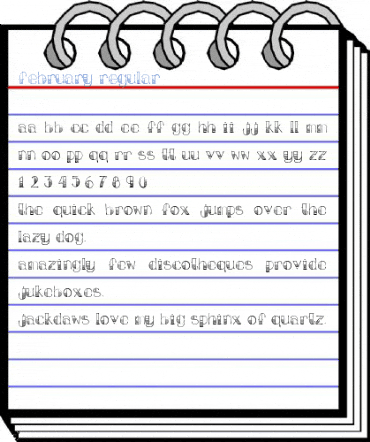 february regular
aa bb cc dd ee ff gg hh ii jj kk ll mm
nn oo pp qq rr ss tt uu vv ww xx yy zz
1 2 3 4 5 6 7 8 9 0
the quick brown fox jumps over the
lazy dog.
amazingly few discotheques provide
jukeboxes.
jackdaws love my big sphinx of quartz.